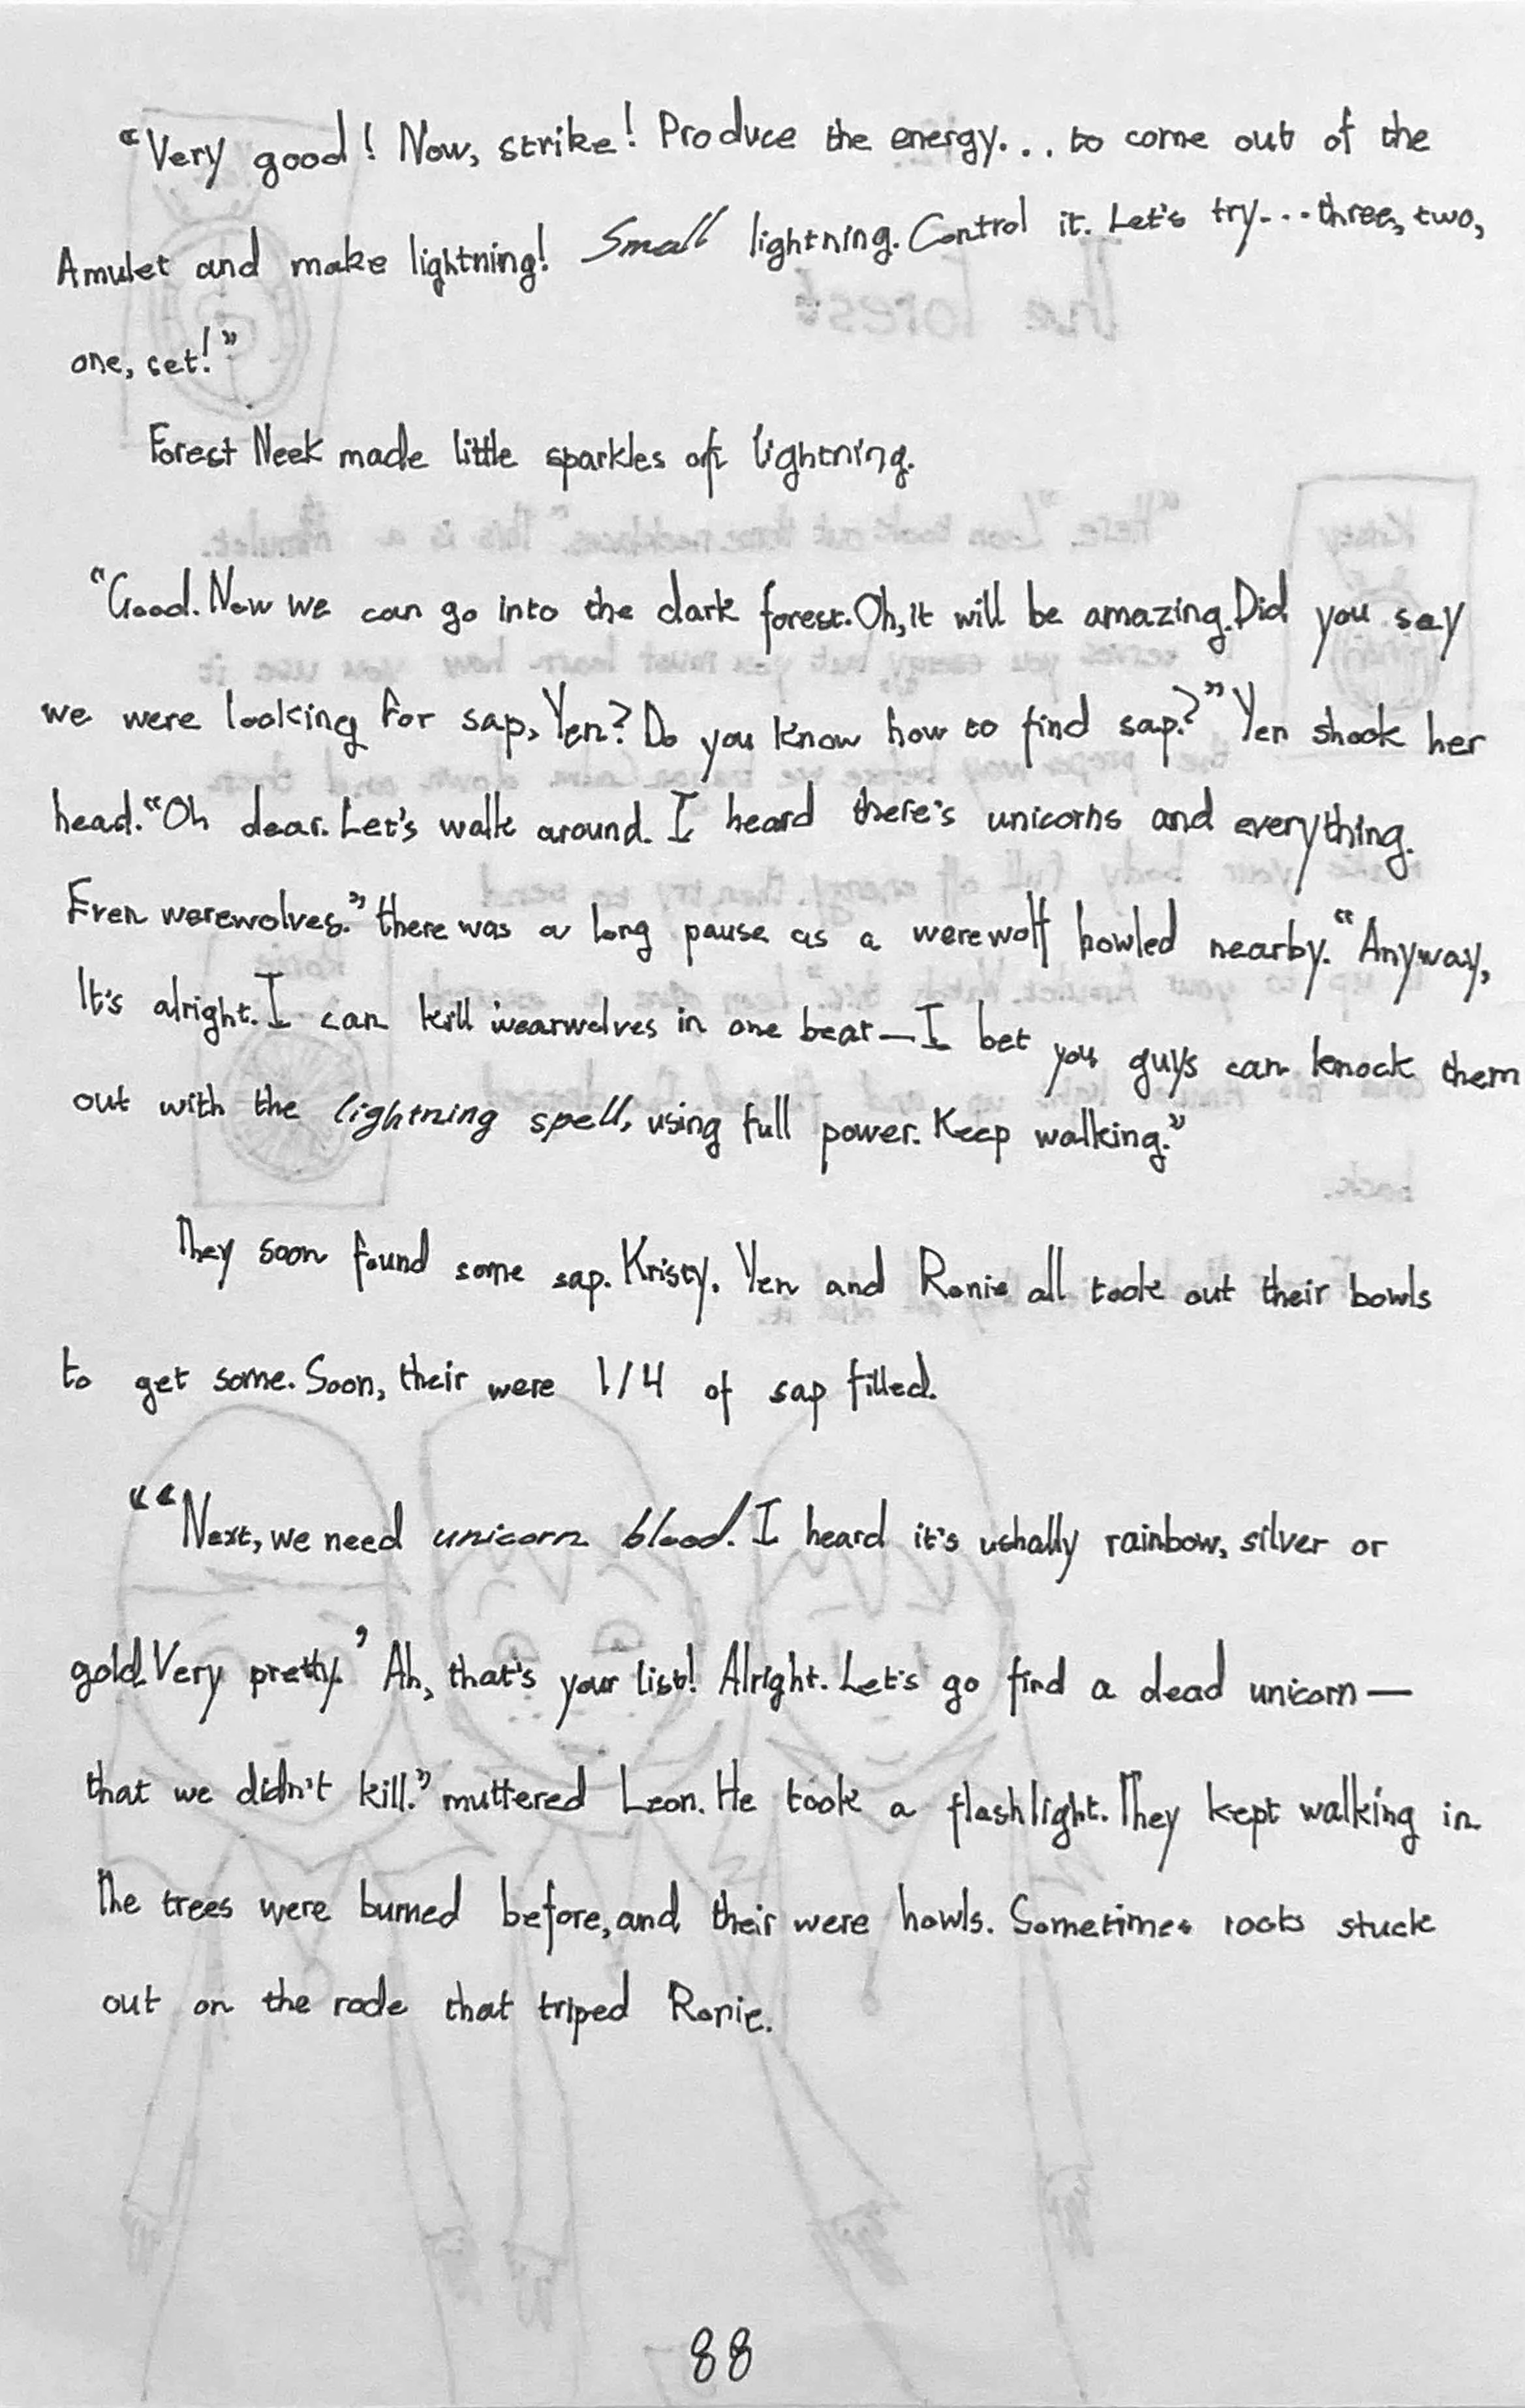 "Very good! Now, strike! Produce the energy... to come out of the
Amulet and make lightning! Small lightning. Control it. Let's try... three, two,
one, set!"
Forest Neek made little sparkles off lightning.
"Good. Now we can go into the dark forest. Oh, it will be amazing. Did you say
we were looking for sap, Yen? Do you know how to find sap?" Yen shook her
head. "Oh dear. Let's walk around. I heard there's unicorns and everything.
Even werewolves." there was a long pause as a werewolf howled nearby. "Anyway,
It's alright. I can kill wearwolves in one beat—I bet you guys can knock them
out with the lightning spell, using full power. Keep walking."
They soon found some sap. Kristy. Yen and Ronie all took out their bowls
to get some. Soon, their were 1/4 of sap filled.
"“Next, we need unicorn blood. I heard it's ushally rainbow, silver or
gold. Very pretty.' Ah, that's your list! Alright. Let's go find a dead unicorn—
that we didn't kill." muttered Leon. He took a flashlight. They kept walking in
The trees were burned before, and their were howls. Sometimes roots stuck
out on the rode that triped Ronie.
88
The forest
"Here." Leon took out three necklaces. "This is a Amulet.
serves you energy, but you must learn how you use it
the proper way before we
down and then
your body full off energy. then, try to send
it up to your Amulet.
back.
Kristy
Ronie